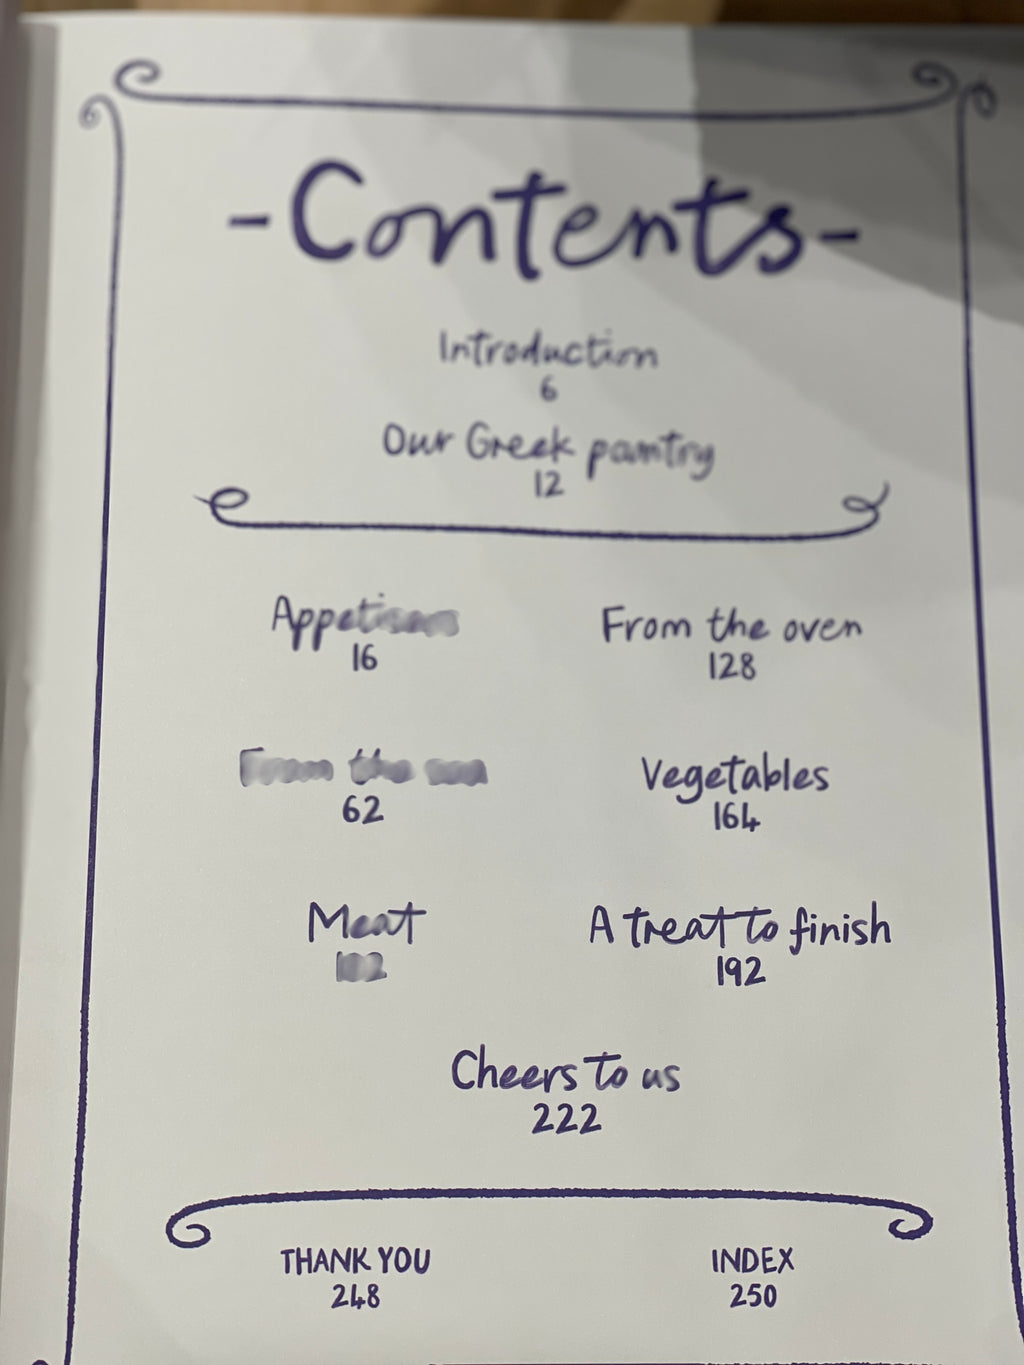 -Contents-
Introduction
6
Our Greek pantry
12
Appetisers
16
From the oven
128
From the sea
62
Vegetables
164
Meat
A treat to finish
192
Cheers to us
222
THANK YOU
248
INDEX
250